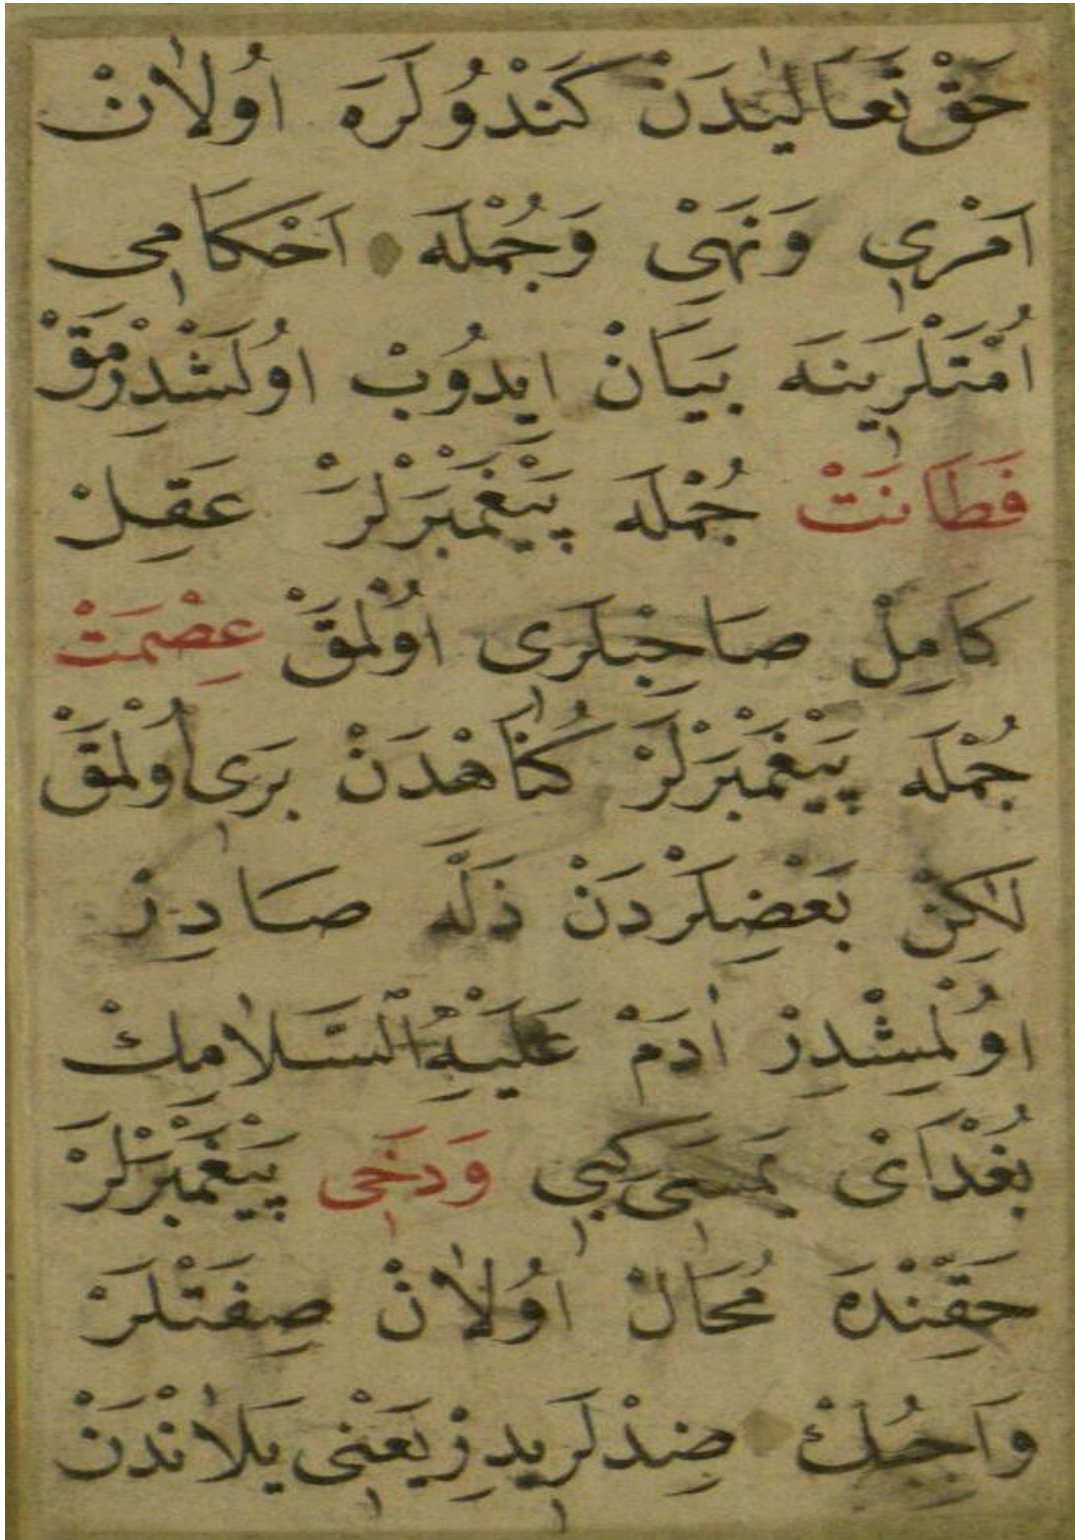 حَقْ تَعَالٰيدَنْ كَنْدُولَرَه اُولَانْ
اَمْرِي وَنَهْيِ وَجُمْلَه اَحْكَامِي
اُمَّتْلَرِينَه بَيَانْ ايدُوبْ اُولَشْدِرْمَقْ
فَطَانَتْ جُمْلَه پَيْغَمْبَرْلَرْ عَقِلْ
كَامِلْ صَاحِبْلَرِى اُولْمَقْ عِصْمَتْ
جُمْلَه پَيْغَمْبَرْلَرْ كُنَاهْدَنْ بَرِى اُولْمَقْ
لٰكِنْ بَعْضِلَرْدَنْ ذَلَّه صَادِرْ
اُولْمِشْدِرْ اٰدَمْ عَلَيْهِ السَّلَامِكْ
بُغْدَاىْ يَمَسِى كِبِى وَدَخِى پَيْغَمْبَرْلَرْ
حَقِّنْدَه مُحَالْ اُولَانْ صِفَتْلَرْ
وَاجِبُكْ ضِدْلَرِيدِرْ يَعْنِى يَلَانْدَنْ